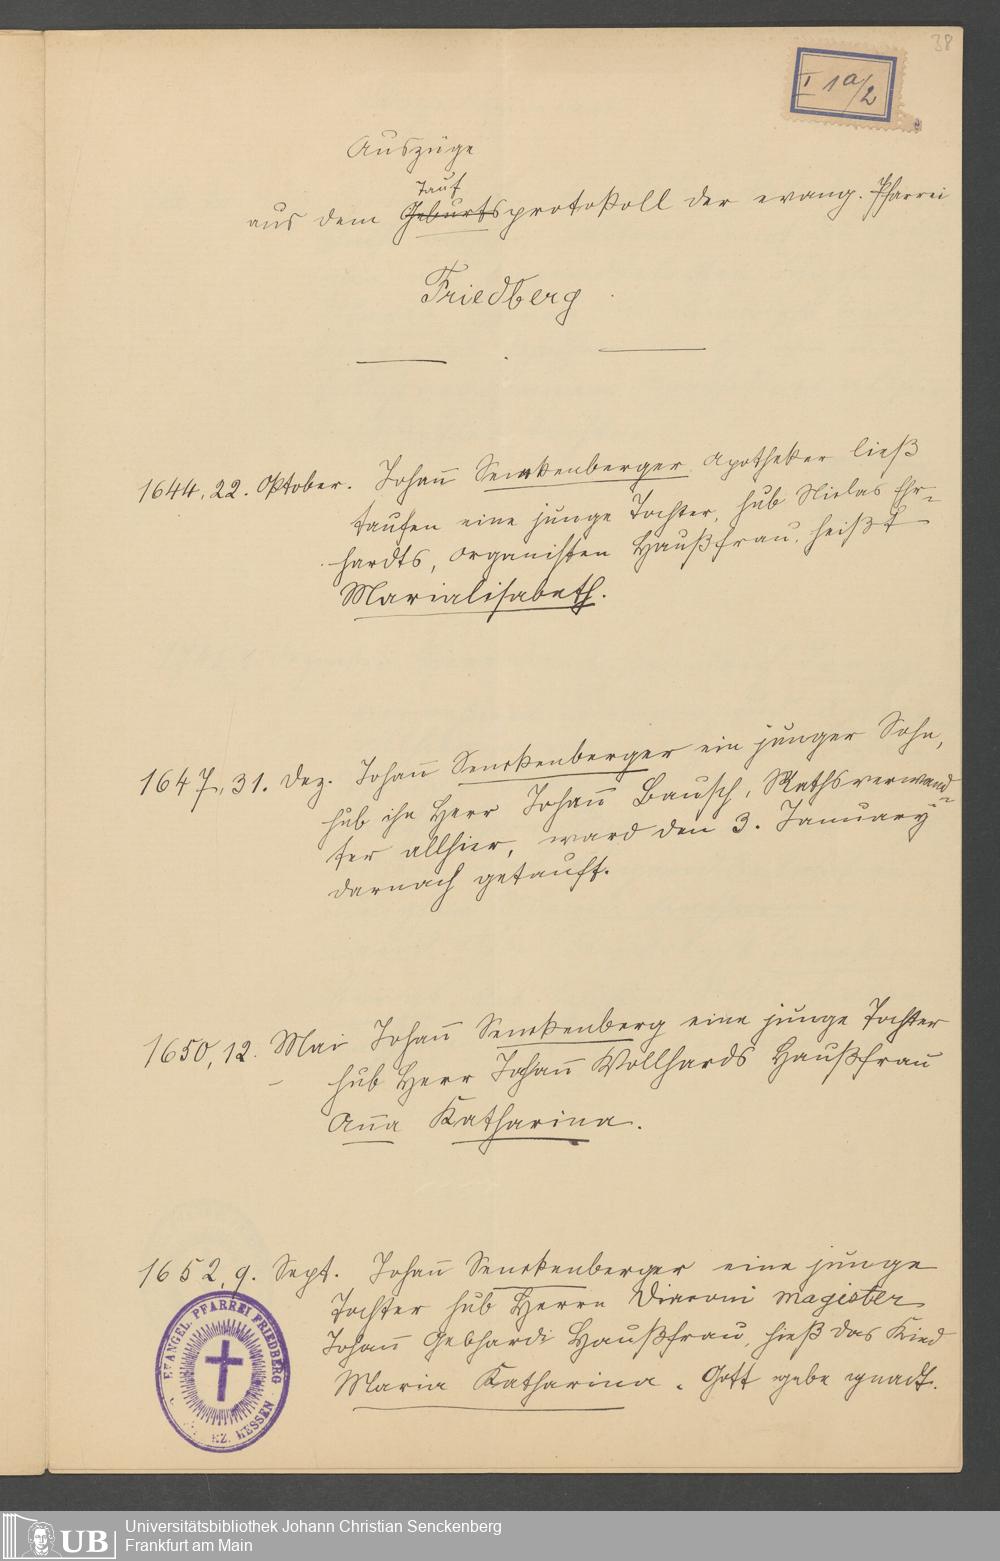 38
I 1a/2
Auszüge
Tauf
aus dem Geburtsprotokoll der evang. Pfarrei
Friedberg
1644, 22. Oktober. Johann Senckenberger Apotheker ließ
taufen eine junge Tochter, hub Niclas Ehr-
hardts, Organisten Haußfrau, heißt
Marialisabeth.
1647, 31. Dez. Johann Senckenberger ein junger Sohn,
hub ihn Herr Johann Bausch, Rathsverwand-
ter allhier, ward den 3. January
darnach getauft.
1650, 12. Mai Johann Senckenberg eine junge Tochter
hub Herr Johann Vollhards Haußfrau
Anna Katharina.
1652, 9. Sept. Johann Senckenberger eine junge
Tochter hub Herrn Diaconi magister
Johann Gebhardi Haußfrau, hieß das Kind
Maria Katharina. Gott gebe gnadt.
EVANGEL. PFARREI FRIEDBERG
HESSEN
UB
Universitätsbibliothek Johann Christian Senckenberg
Frankfurt am Main